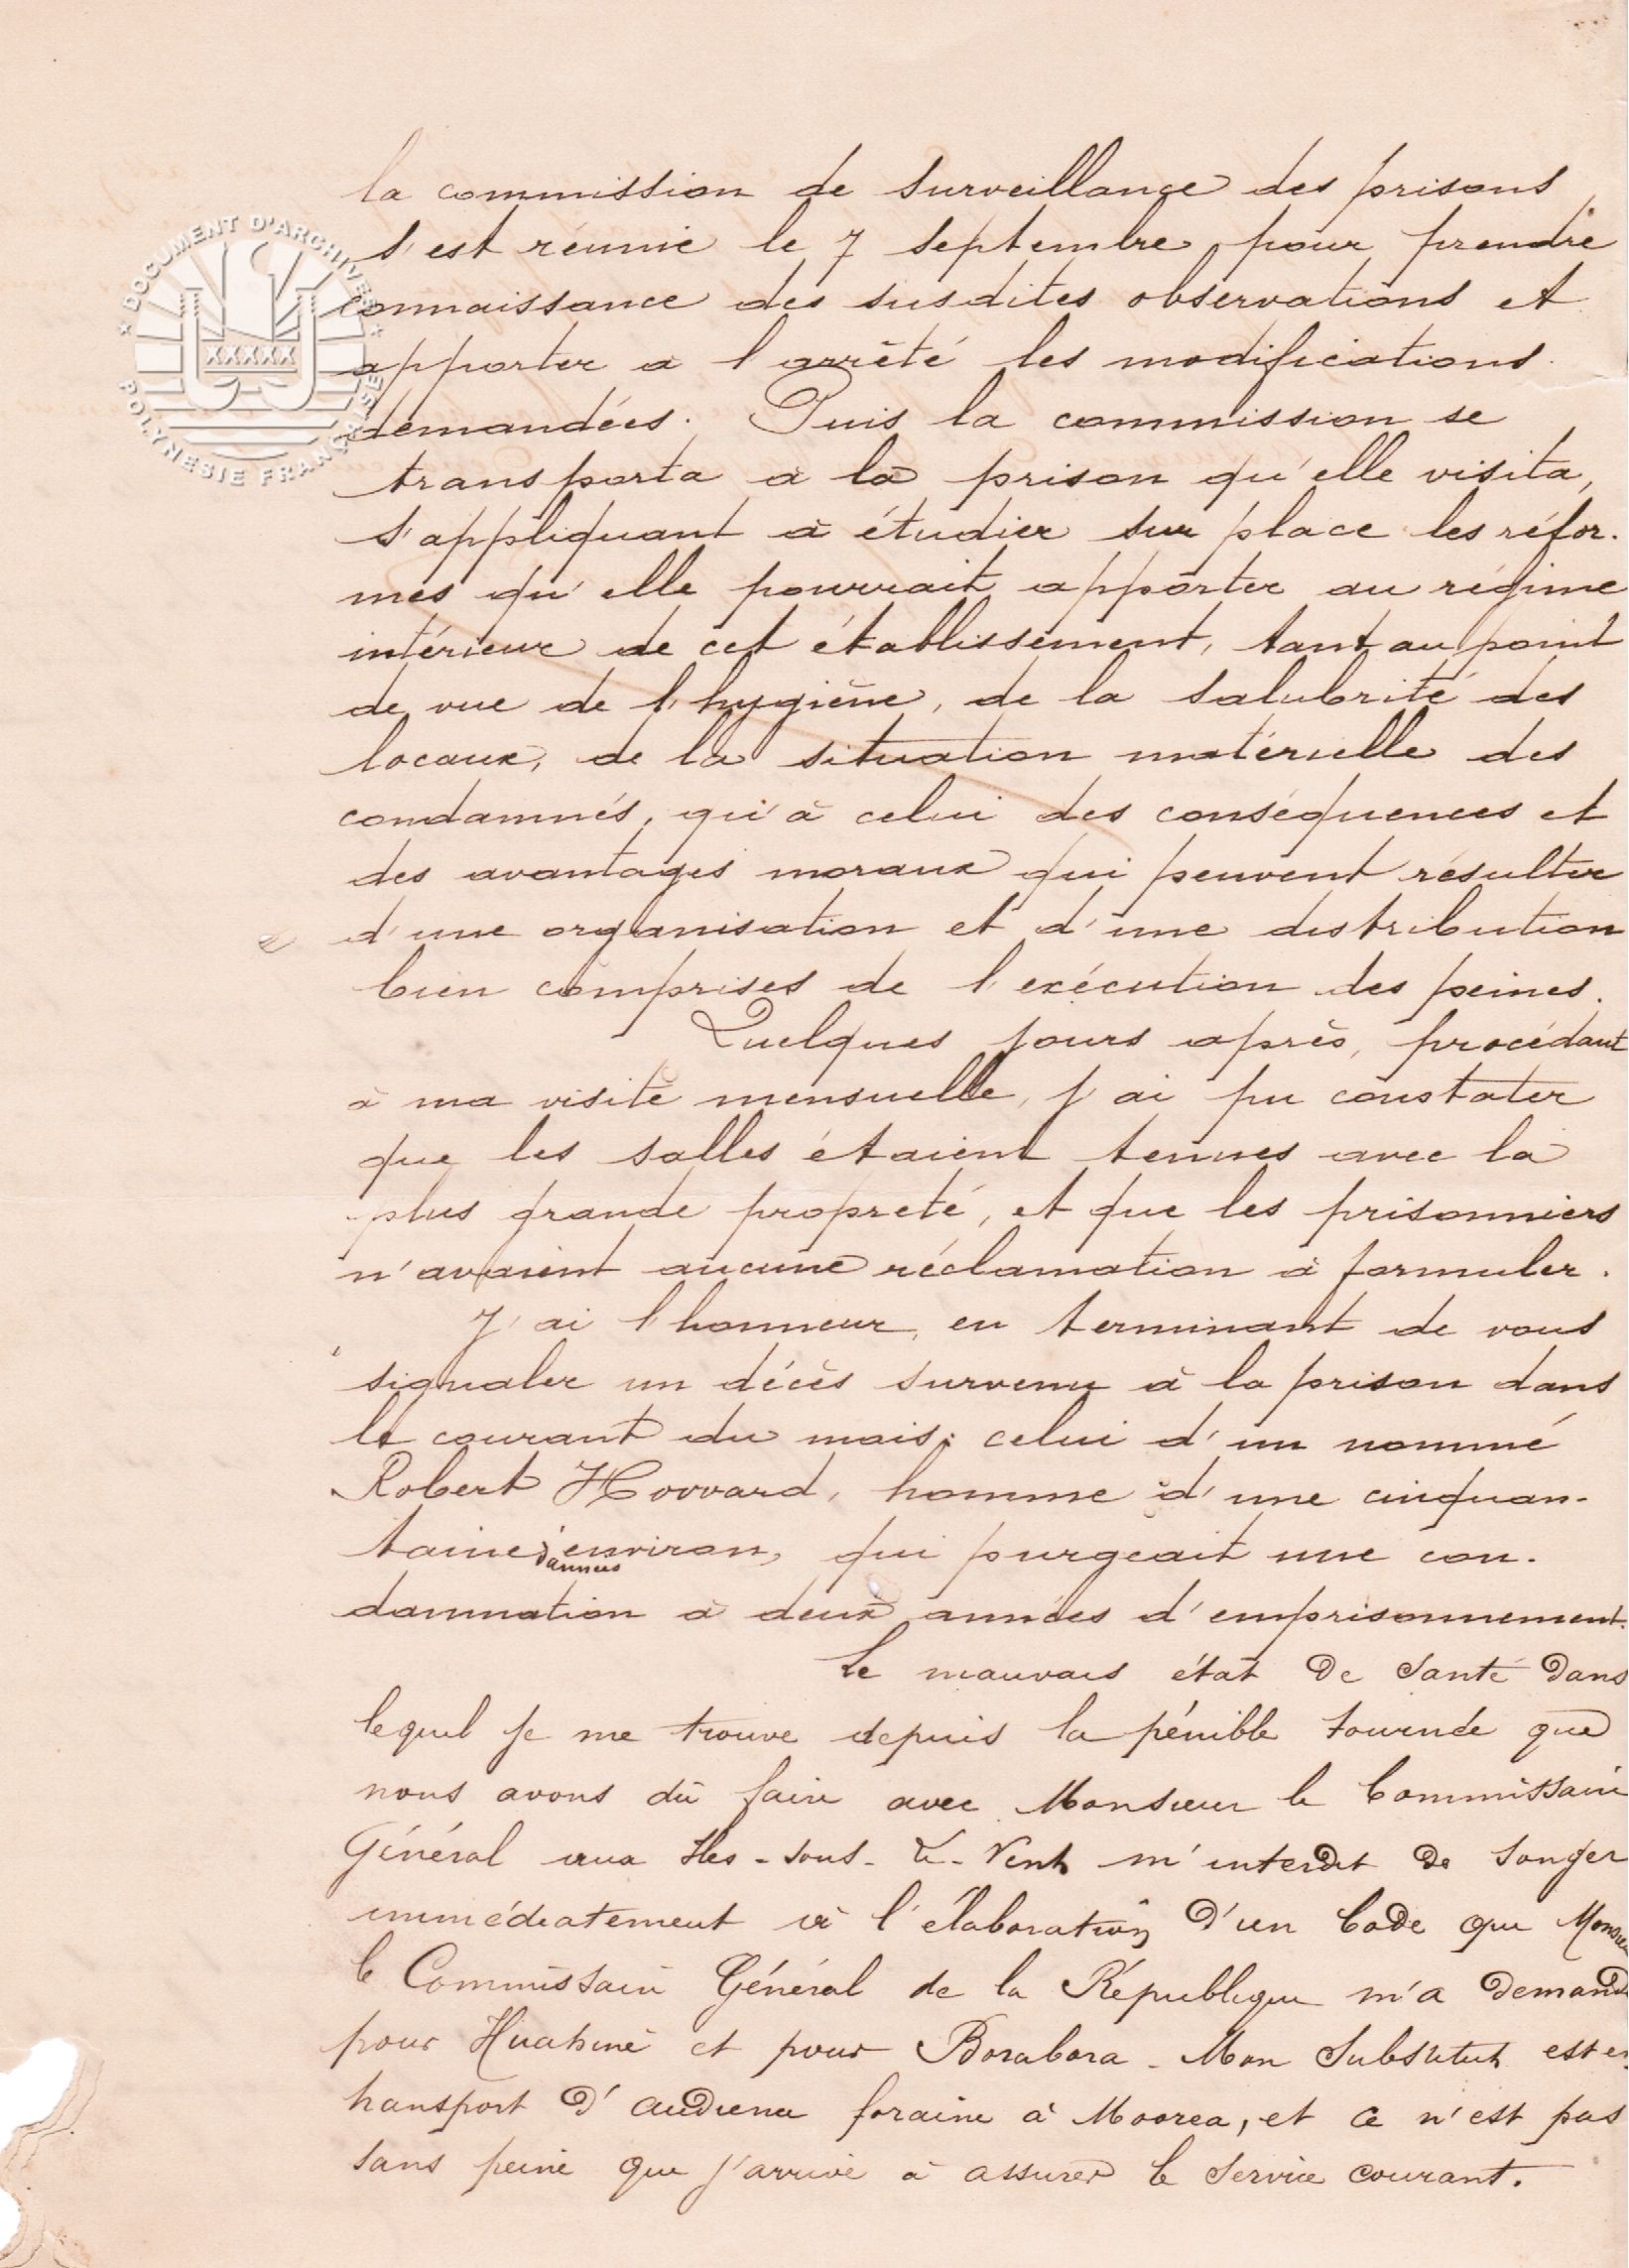 la commission de surveillance des prisons
s'est réunie le 7 septembre, pour prendre
connaissance des susdites observations et
apporter à l'arrêté les modifications
demandées. Puis la commission se
transporta à la prison qu'elle visita,
s'appliquant à étudier sur place les réfor-
mes qu'elle pourrait apporter au régime
intérieur de cet établissement, tant au point
de vue de l'hygiène, de la salubrité des
locaux, de la situation matérielle des
condamnés, qu'à celui des conséquences et
des avantages moraux qui peuvent résulter
d'une organisation et d'une distribution
bien comprises de l'exécution des peines.
Quelques jours après, procédant
à ma visite mensuelle, j'ai pu constater
que les salles étaient tenues avec la
plus grande propreté, et que les prisonniers
n'avaient aucune réclamation à formuler.
J'ai l'honneur, en terminant de vous
signaler un décès survenu à la prison dans
le courant du mois; celui d'un nommé
Robert Howard, homme d'une cinquan-
taine d'années environ, qui purgeait une con-
damnation à deux années d'emprisonnement.
Le mauvais état de santé dans
lequel je me trouve depuis la pénible tournée que
nous avons dû faire avec Monsieur le Commissaire
Général aux Iles-sous-le-Vent m'interdit de songer
immédiatement à l'élaboration d'un Code que Monsieur
le Commissaire Général de la République m'a demandé
pour Huahine et pour Borabora. Mon Substitut est en
transport d'audience foraine à Moorea, et ce n'est pas
sans peine que j'arrive à assurer le service courant.
DOCUMENT D'ARCHIVES
XXXXX
POLYNESIE FRANÇAISE